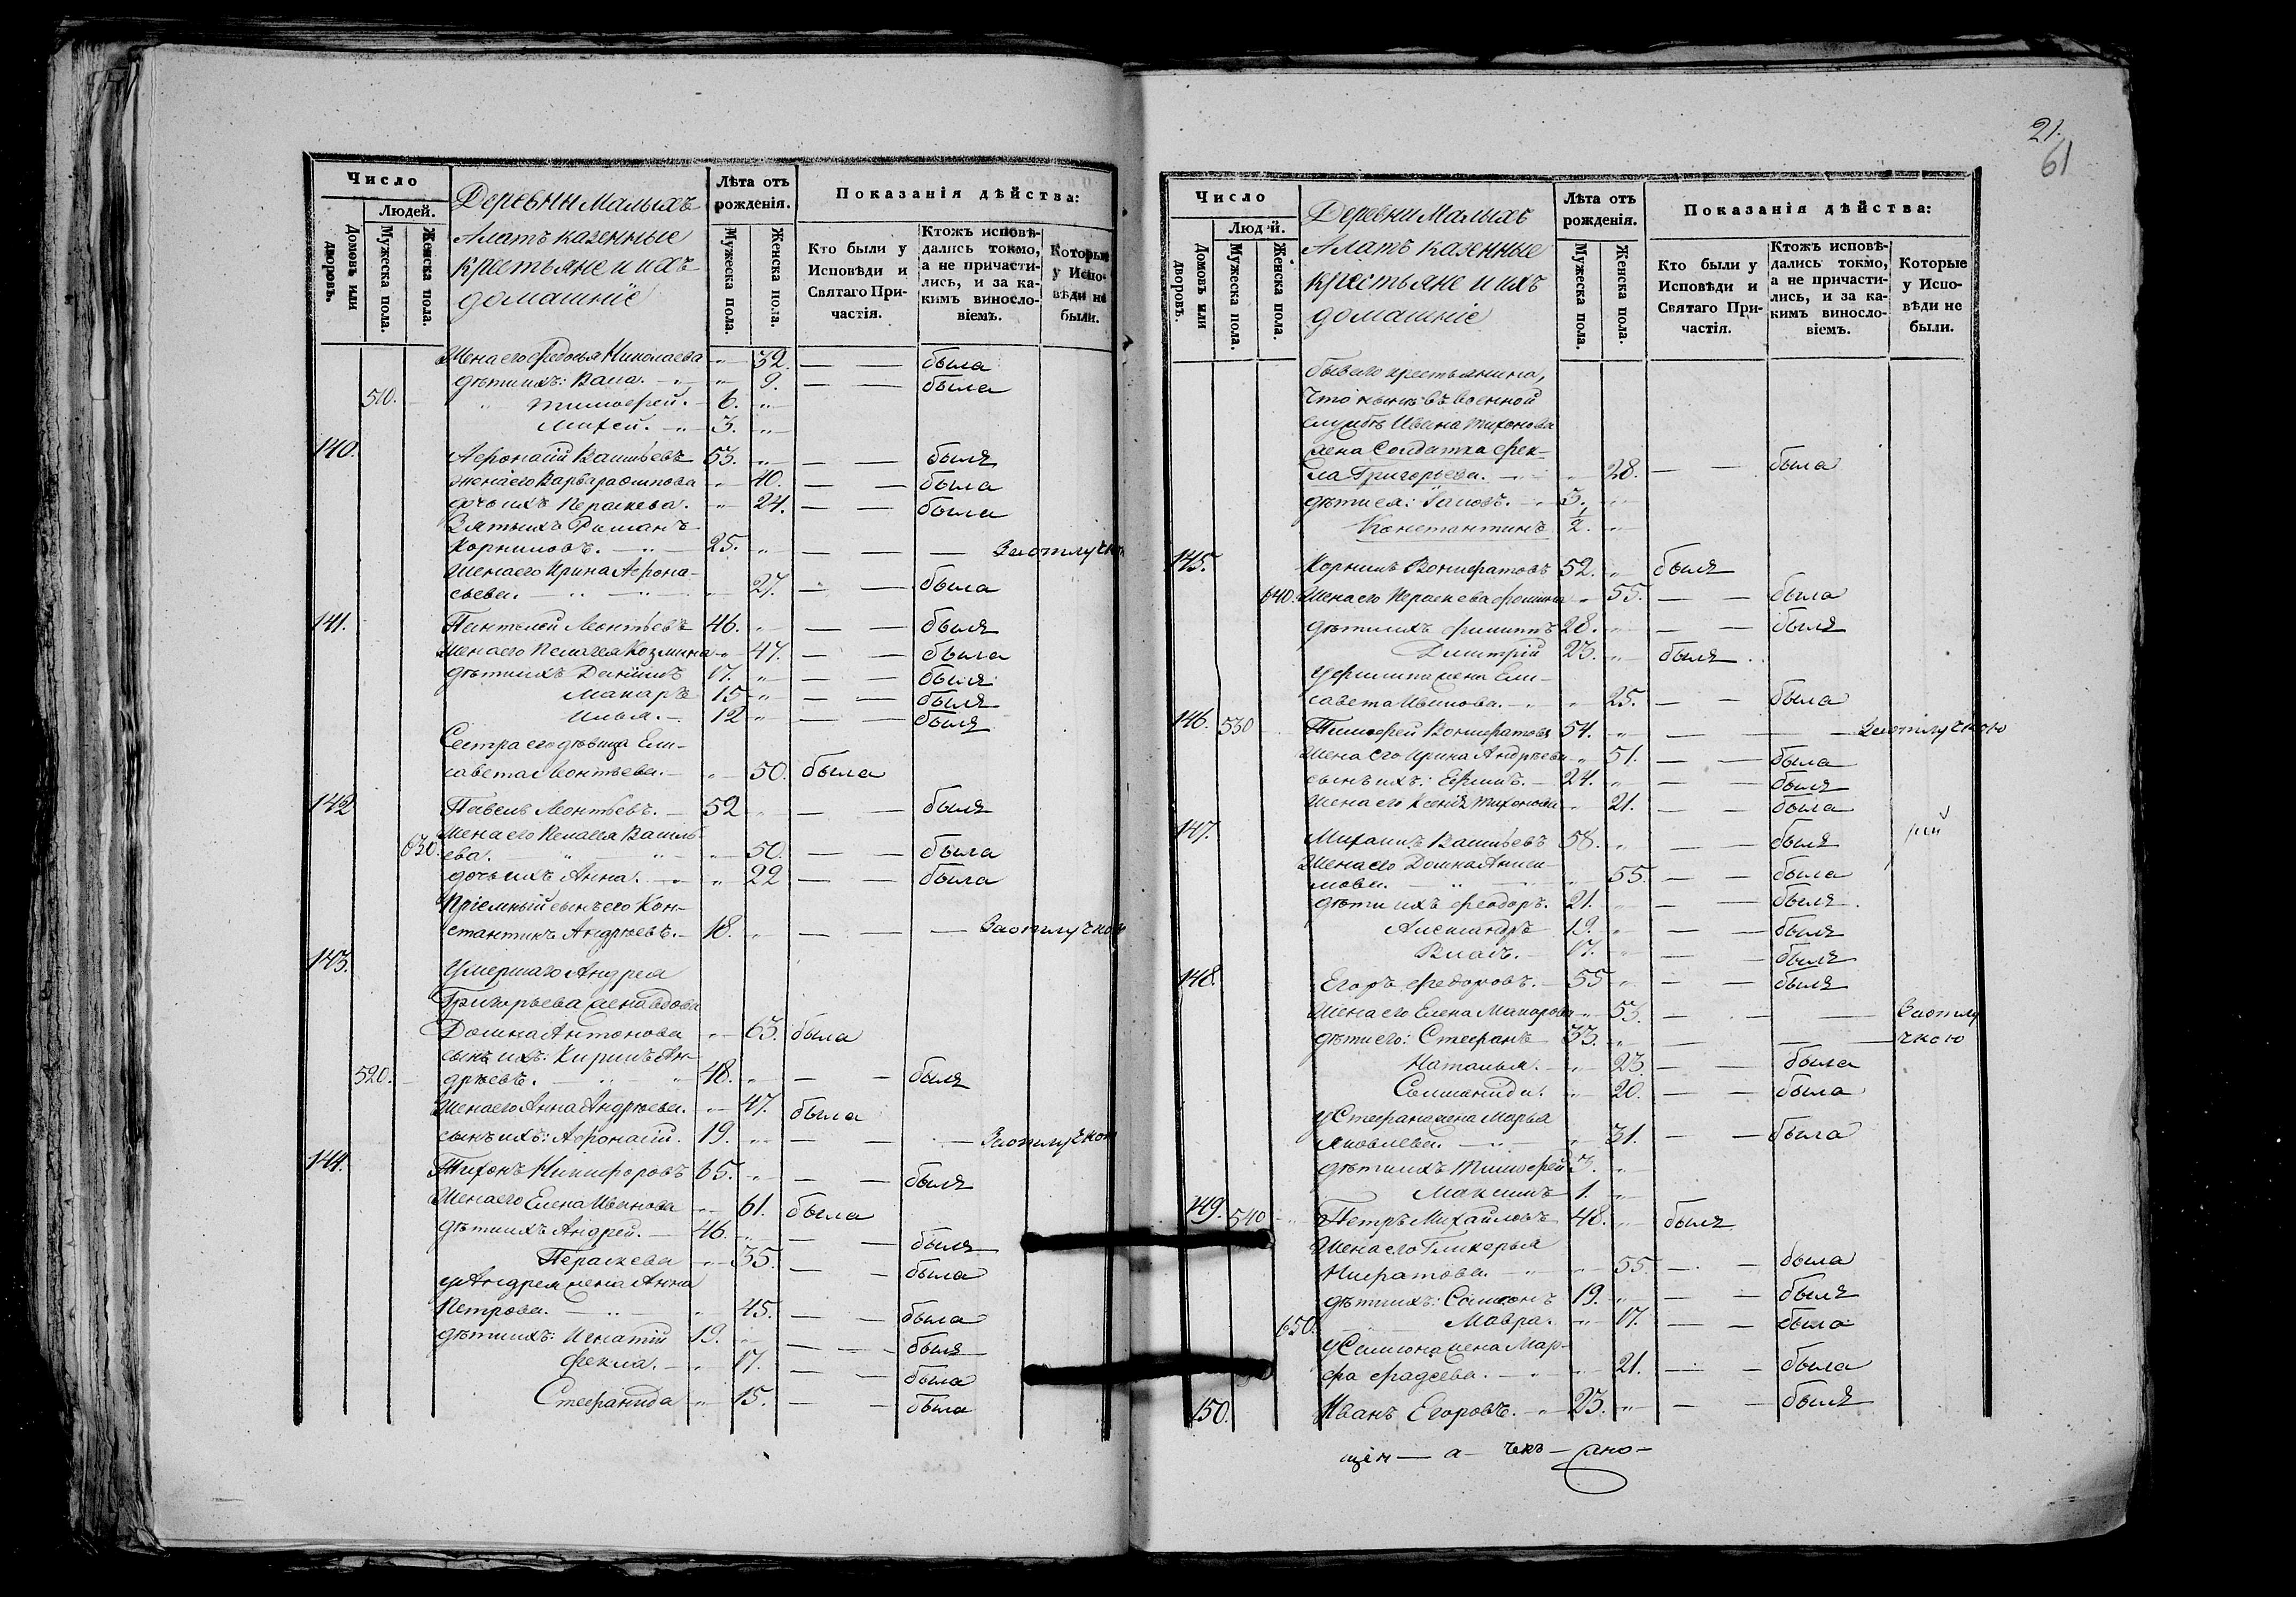 Число
Людей.
Домовъ или дворовъ.
Мужеска пола.
Женска пола.
Деревни Малыхъ
Алатъ казенные
крестьяне и ихъ
домашніе
Лѣта отъ рожденія.
Мужеска пола.
Женска пола.
Показанія дѣйства:
Кто были у Исповѣди и Святаго Причастія.
Ктожъ исповѣдались токмо, а не причастились, и за какимъ винословіемъ.
Которые у Исповѣди не были.
Жена его Федосья Николаева „ 32. — — была
дѣти ихъ: „ 9. — — была
510. Тимофей. 6. „
Михей. 3. „
140. Афонасій Васильевъ 53. „ — — былъ
жена его Варвара Осипова „ 40. — — была
дочь ихъ Пераскева. „ 24. — — была
Зять ихъ Романъ
Корниловъ. 25. „ — — — За отлучкою
Жена его Ирина Афона-
сьева. „ 27. — — была
141. Пантелей Леонтьевъ 46. „ — — былъ
Жена его Пелагея Козмина „ 47. — — была
дѣти ихъ Даніилъ 17. „ — — былъ
Макаръ 15 „ — — былъ
Илья. 12 „ — — былъ
Сестра его дѣвица Ели-
савета Леонтьева. „ 50. была
142 Павелъ Леонтьевъ. 52 „ — — былъ
Жена его Пелагея Василь-
630. ева. „ 50. — — была
дочь ихъ Анна. „ 22 — — была
Пріемный сынъ его Кон-
стантинъ Андреевъ. 18. „ — — — За отлучкою
143. Умершаго Андрея
Григорьева жена вдова
Домна Антонова „ 63. была
сынъ ихъ: Кирилъ Ан-
520. дреевъ. 48. „ — — былъ
Жена его Анна Андреева. „ 47. была
сынъ ихъ: Афонасій. 19. „ — — — За отлучкою
144. Тихонъ Никифоровъ 65. „ — — былъ
Жена его Елена Иванова „ 61. была
дѣти ихъ Андрей. 46. „ — — былъ
Пераскева „ 35. — — была
у Андрея жена Анна
Петрова. „ 45. — — была
дѣти ихъ: Игнатій 19. „ — — былъ
Фекла. „ 17. — — была
Стефанида „ 15. — — была
21.
61
Число
Людей.
Домовъ или дворовъ.
Мужеска пола.
Женска пола.
Деревни Малыхъ
Алатъ казенные
крестьяне и ихъ
домашніе
Лѣта отъ рожденія.
Мужеска пола.
Женска пола.
Показанія дѣйства:
Кто были у Исповѣди и Святаго Причастія.
Ктожъ исповѣдались токмо, а не причастились, и за какимъ винословіемъ.
Которые у Исповѣди не были.
бывшаго крестьянина,
что нынѣ въ военной
службѣ Ивана Тихонова
жена Солдатка Фек-
ла Григорьева. „ 28. — — была
дѣти ея: 3. „
Константинъ ½. „
145. Корнилъ Вонифатовъ 52. „ былъ
640. Жена его Пераскева Фомина „ 55. — — была
дѣти ихъ Филиппъ 28. „ — — былъ
Димитрій 23. „ былъ
у Филиппа жена Ели-
савета Иванова. „ 25. — — была
146. 530 Тимофей Вонифатовъ 54. „ — — — За отлучкою
Жена его Ирина Андреева „ 51. — — была
сынъ ихъ: Ефимъ. 24. „ — — былъ
Жена его Ксенія Тихонова „ 21. — — была
147. Михаилъ Васильевъ 58. „ — — былъ
Жена его Домна Аниси-
мова. „ 55. — — была
дѣти ихъ Феодоръ. 21. „ — — былъ
Александръ 19. „ — — былъ
Власъ. 17. „ — — былъ
148. Егоръ Федоровъ. 55 „ — — былъ
Жена его Елена Макарова „ 53. — — — За отлу
дѣти его: Стефанъ 33. „ — — чкою
Наталья. „ 23. — — была
Соломанида. „ 20. — — была
у Стефана жена Марья
Яковлева. „ 31. — — была
дѣти ихъ Тимофей 3. „
Максимъ 1. „
149. 540 Петръ Михайловъ 48. „ былъ
Жена его Гликерья
Нифатова. „ 55. — — была
дѣти ихъ: Самсонъ 19. „ — — былъ
650. Мавра. „ 17. — — была
у Самсона жена Мар-
фа Фадеева. „ 21. — — была
150. Иванъ Егоровъ. 23. „ — — былъ